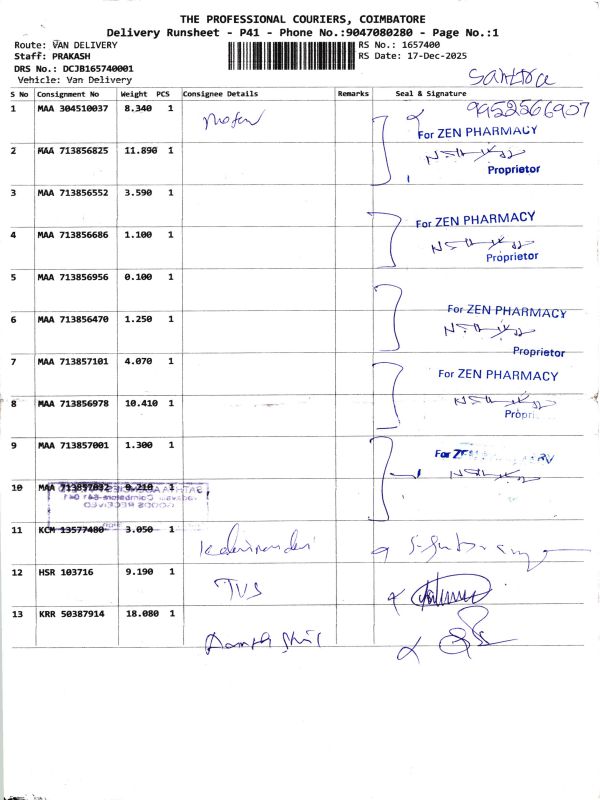 THE PROFESSIONAL COURIERS, COIMBATORE
Delivery Runsheet - P41 - Phone No.:9047080280 - Page No.:1
Route: VAN DELIVERY
RS No.: 1657400
Staff: PRAKASH
RS Date: 17-Dec-2025
DRS No.: DCJB165740001
Vehicle: Van Delivery
S No Consignment No Weight PCS Consignee Details Remarks Seal & Signature
9952566907
1 MAA 304510037 8.340 1
For ZEN PHARMACY
2 MAA 713856825 11.890 1
Proprietor
3 MAA 713856552 3.590 1
For ZEN PHARMACY
4 MAA 713856686 1.100 1
Proprietor
5 MAA 713856956 0.100 1
For ZEN PHARMACY
6 MAA 713856470 1.250 1
Proprietor
7 MAA 713857101 4.070 1
For ZEN PHARMACY
8 MAA 713856978 10.410 1
9 MAA 713857001 1.300 1
For
10 MAA 713857032 0.210 1
GOODS RECEIVED
11 KCM 13577480 3.050 1
12 HSR 103716 9.190 1
TVS
13 KRR 50387914 18.080 1